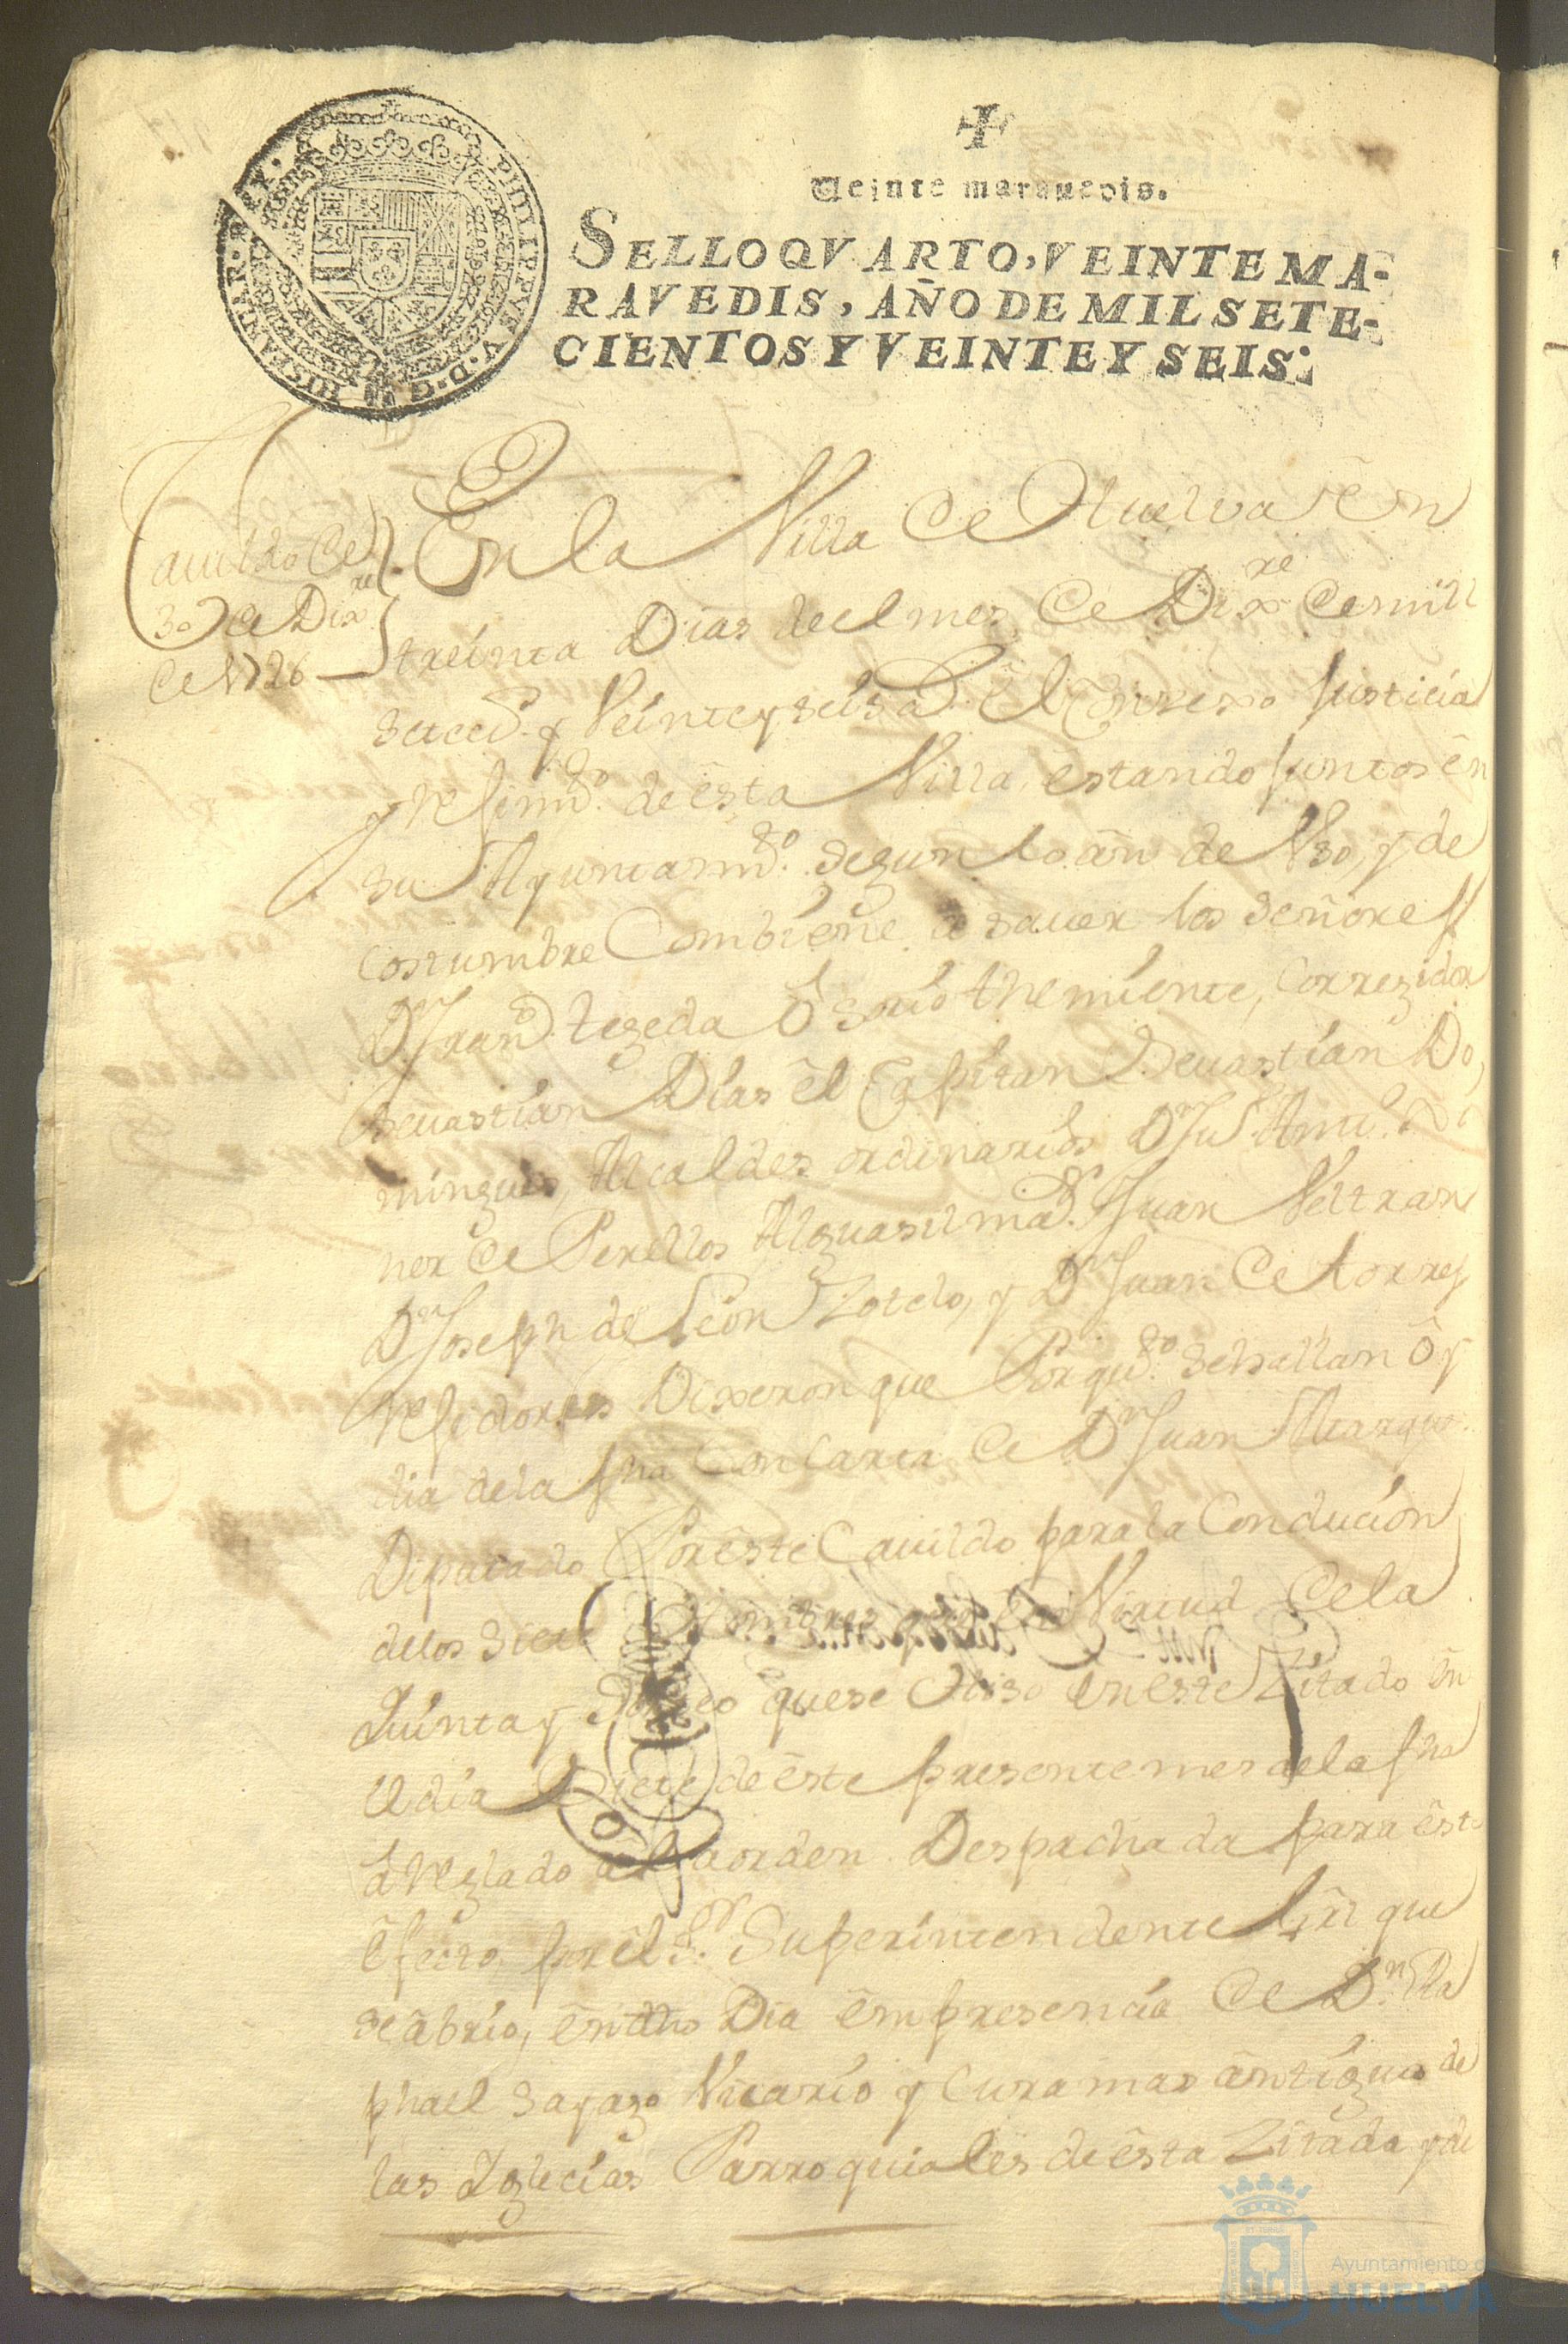 PHILIPPVS V. D. G. HISPANIAR. REX.
Veinte marauedis.
SELLO QVARTO, VEINTE MA-
RAVEDIS, AÑO DE MIL SETE-
CIENTOS Y VEINTE Y SEIS.
Cauildo de
30 de Dixre
de 1726
En la Villa de Huelva ên
treinta Dias de el mes de Dixre de mill
setecs. y Veinte y seis as. El Conzexo Justicia
y Resimto. de êsta Villa, estando juntos ên
su Ayuntamto. segun lo ân de Vso, y de
costumbre Combiêne â sauer los señores
Dn Franco. tegeda Ôsorio theniente, Corregidor
Seuastian Dias êl Capitan Seuastian Do,
minguez, Alcaldes ordinarios Dn
ner de Perellos Alguasil mar. Juan Veltran
Dn Joseph de Leon Zotelo, y Dn Juan de torres
Residores Dixeron que Por quto. se hallan ôy
dia de la fha Con Carta de Dn Juan Marquez
Diputado Por êste Cauildo para la Conducion
de los siete Hombres que en Virtud de la
Junta y Sorteo que se Hiso en êste Zitado ên
el dia Siete de êste presente mes de la fha
ârreglado a la orden Despachada para êste
êfecto por êl Sr. Superintendente Grl que
se âbrio, ên dho Dia êm presencia de Dn Ra
phael sayago Vicario y Cura mas ântiguo de
las Yglecias Parroquiales de êsta Zitada y de
Ayuntamiento de
HUELVA